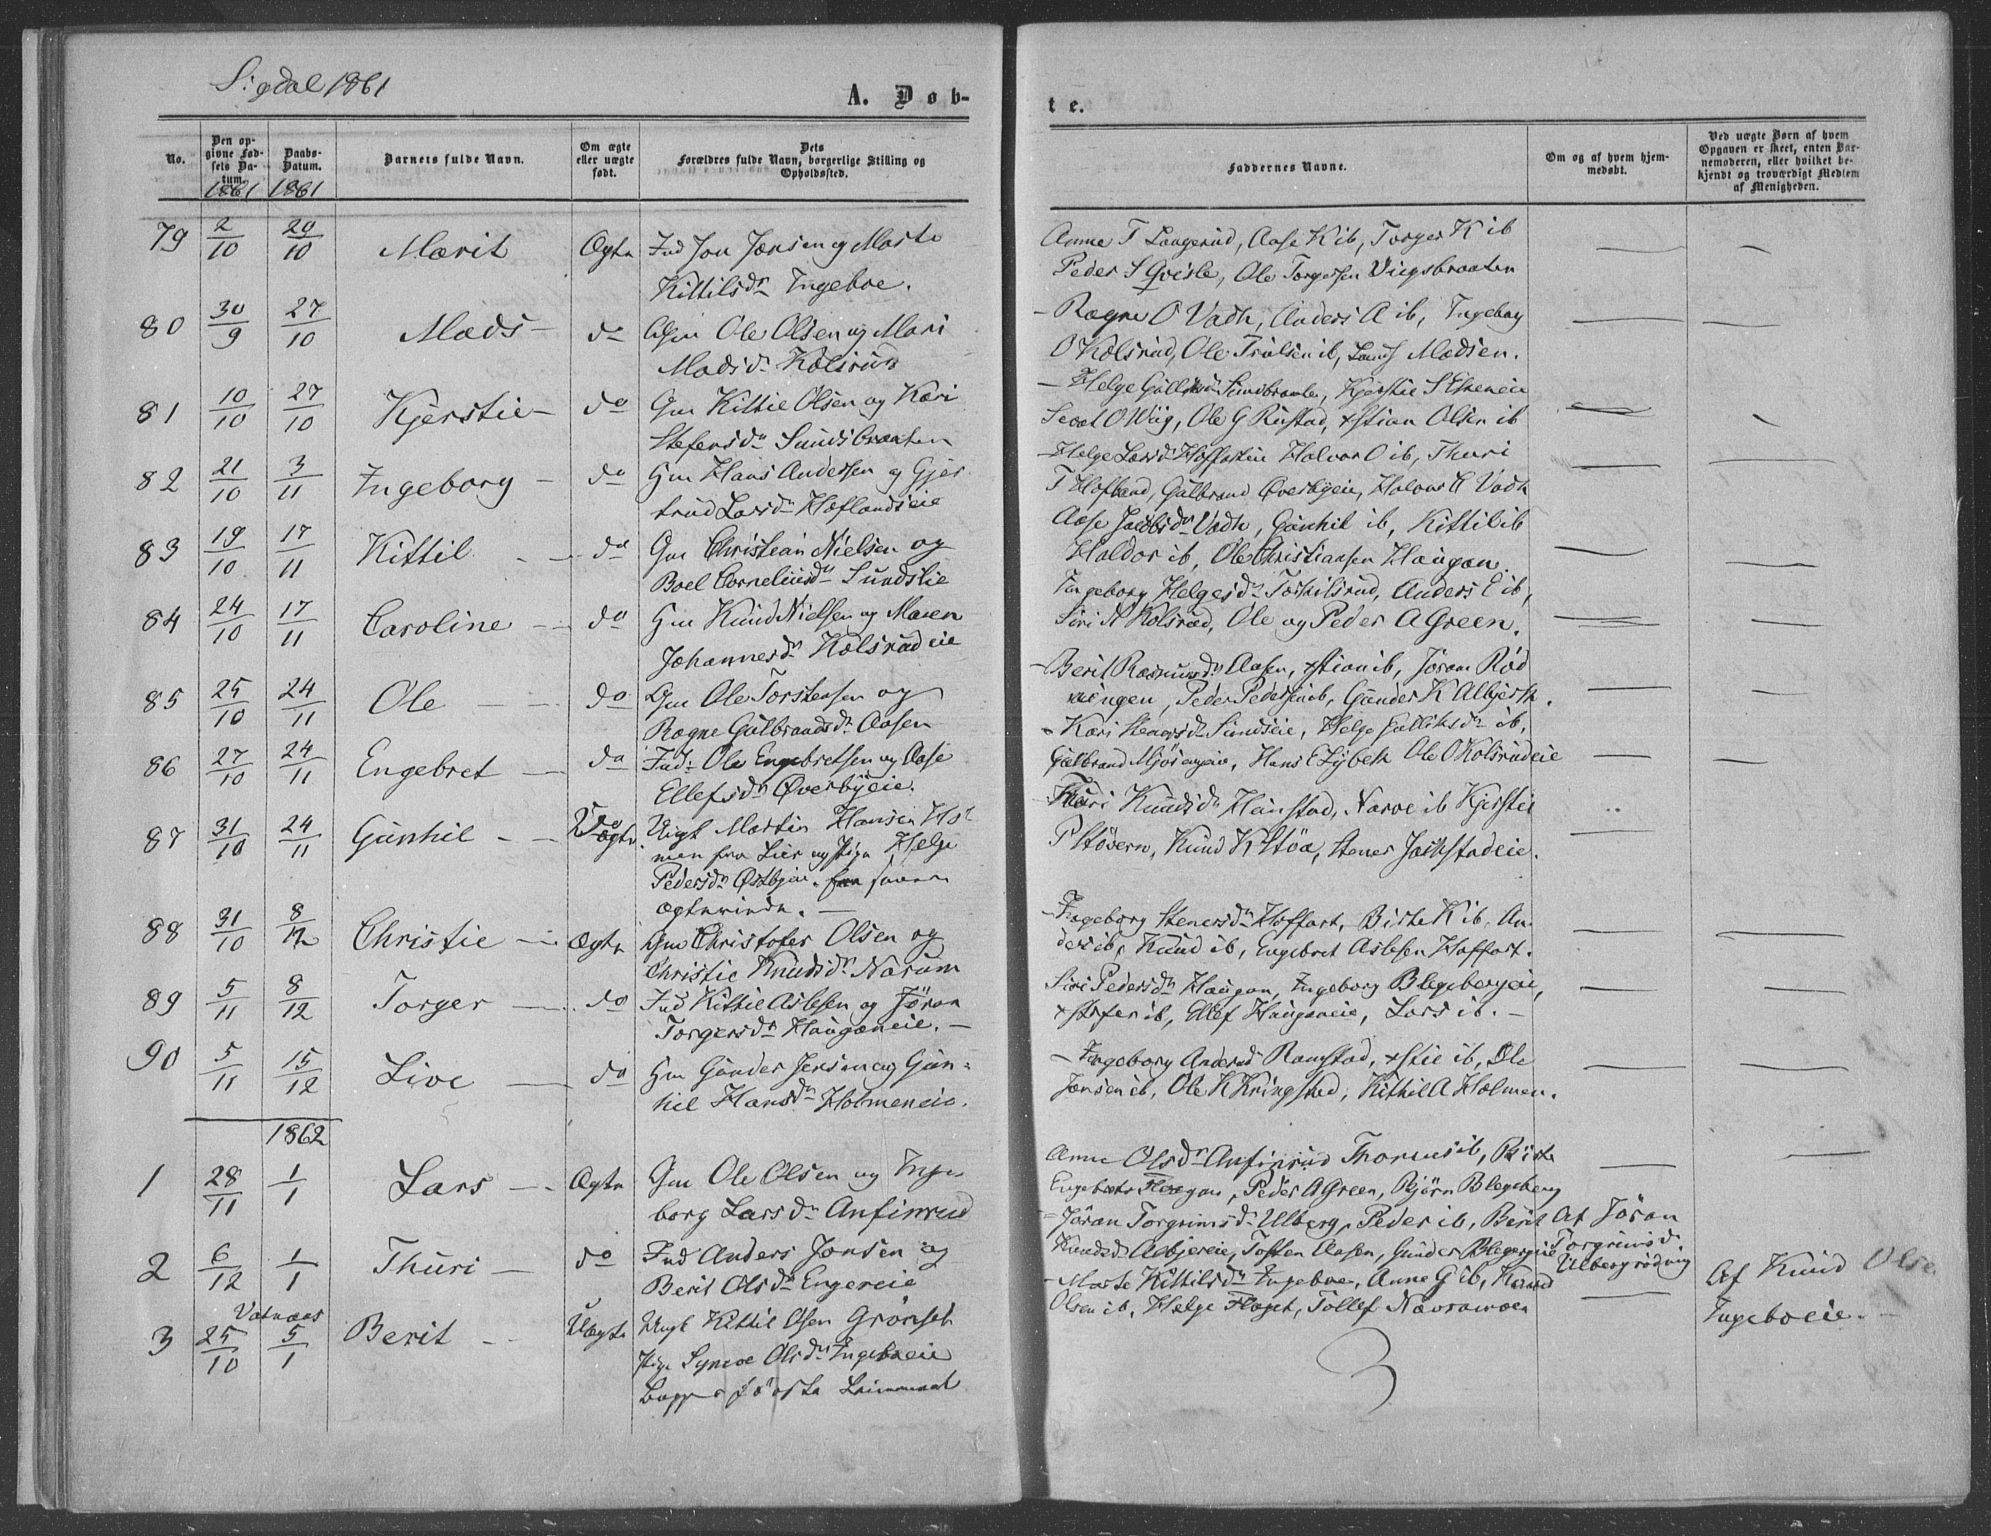 Sigdal 1861
A. Døb-
te.
No.
Den op-
givne Fød-
sels Da-
tum.
1861
Daabs-
Datum.
1861
Barnets fulde Navn.
Om ægte
eller uægte
født.
Dets
Forældres fulde Navn, borgerlige Stilling og
Opholdssted.
Faddernes Navne.
Om og af hvem hjem-
medøbt.
Ved uægte Børn af hvem
Opgaven er skeet, enten Bar-
nemoderen, eller hvilket be-
kjendt og troværdigt Medlem
af Menigheden.
79 2/10 20/10 Marit Ægte Ind Jon Jensen og Marte
Kittilsdr Ingeboe.
Anne T Langerud, Aase K ib, Torger K ib
Peder S Qvisle, Ole Torgersen Viigsbraaten
80 30/9 27/10 Mads - do Gm Ole Olsen og Mari
Madsdr Kolsrud
- Ragne O Vadh, Anders A ib, Ingeborg
O Kolsrud, Ole Trulsen ib, Madsen.
81 10/10 27/10 Kjerstie - do Gm Kittil Olsen og Kari
Stefensdr Sundsbraaten
- Helge Sundbraaten, Kjerstie S
O Wiig, Ole G Rustad, xstian Olsen ib
82 21/10 3/11 Ingeborg - do Gm Hans Andersen og Gjer
trud Larsdr Hoflandseie
- Helge Larsdr Hoffarteie Halvor O ib, Thuri
T Hofland, Gulbrand Øverbyeie, Halvor H Vadh
83 19/10 17/11 Kittil - do Gm Christian Nielsen og
Boel Corneliusdr Sundslie
Aase Jacobsdr Vadh, Gunhil ib, Kittil ib
Haldor ib, Ole Christiansen Haugan.
84 24/10 17/11 Caroline - do Gm Knud Nielsen og Maren
Johannesdr Kolsrudeie
Ingeborg Helgesdr Torkilsrud, Anders E ib,
Siri N Kolsrud, Ole og Peder A Green.
85 25/10 24/11 Ole - do Gm Ole Torstensen og
Ragne Gulbrandsdr Aasen
- Beril Rasmusdr Aasen, xstian ib, Jöran Röd
ningen, Peder Pedersen ib, Gunder K Albjerk.
86 27/10 24/11 Engebret - do Ind: Ole Engebretsen og Aase
Ellefsdr Øverbyeie.
- Kari Stenersdr Sundseie, Helge Gulliksdr ib,
Gulbrand Mjösenseie, Hans E Lybek Ole O Kolsrudeie
87 31/10 24/11 Gunhil - - Uægte Ungk Martin Hansen Hol
men fra Lier og Pige Helge
Pedersdr Østbyeie.
Thuri Knudsdr Hanstad, Narve ib Kjerstie
P Stövern, Knud K Stöa, Stener
88 31/10 8/12 Christie - Ægte Gm Christofer Olsen og
Christie Knudsdr Narum
- Ingeborg Stenersdr Hoffart, Birte K ib, An
ders ib, Knud ib, Engebret Aslesen Hoffart.
89 5/11 8/12 Torger - do Ind Kittil Aslesen og Jöran
Torgersdr Hauganeie. -
Siri Pedersdr Haugan, Ingeborg Blegebergeie,
xstofer ib, Ellef Hauganeie, Lars ib. -
90 5/11 15/12 Live - do Gm Gunder Jensen og Gun-
hil Hansdr Holmeneie.
- Ingeborg Andersdr Ramstad, xstie ib, Ole
Jensen ib, Ole K Kringstad, Kittil A Holmen.
1862
1 28/11 1/1 Lars - Ægte Gm Ole Olsen og Inge
borg Larsdr Anfinrud
Anne Olsdr Anfinrud Thorines ib, Birte
Engebrets Haugan, Peder A Green, Björn Blegeberg
2 6/12 1/1 Thuri - do Ind Anders Jonsen og
Berit Olsdr Engereie
- Jöran Torgrimsdr Ulberg, Peder ib, Berit
Knudsdr Albjereie, Tosten Aasen, Gunder Blegebergeie
Af Jöran
Torgrimsdr
Ulberg rödning
3 Vatnaas 25/10 5/1 Berit - - Uægte Ungk Kittil Olsen Grönset
Pige Synove Olsdr Ingeboeie
- Marte Kittilsdr Ingeboe, Anne G ib, Knud
Olsen ib, Helge Flaget, Tollef Navramoen
Af Knud Olse
Ingeboeie. -